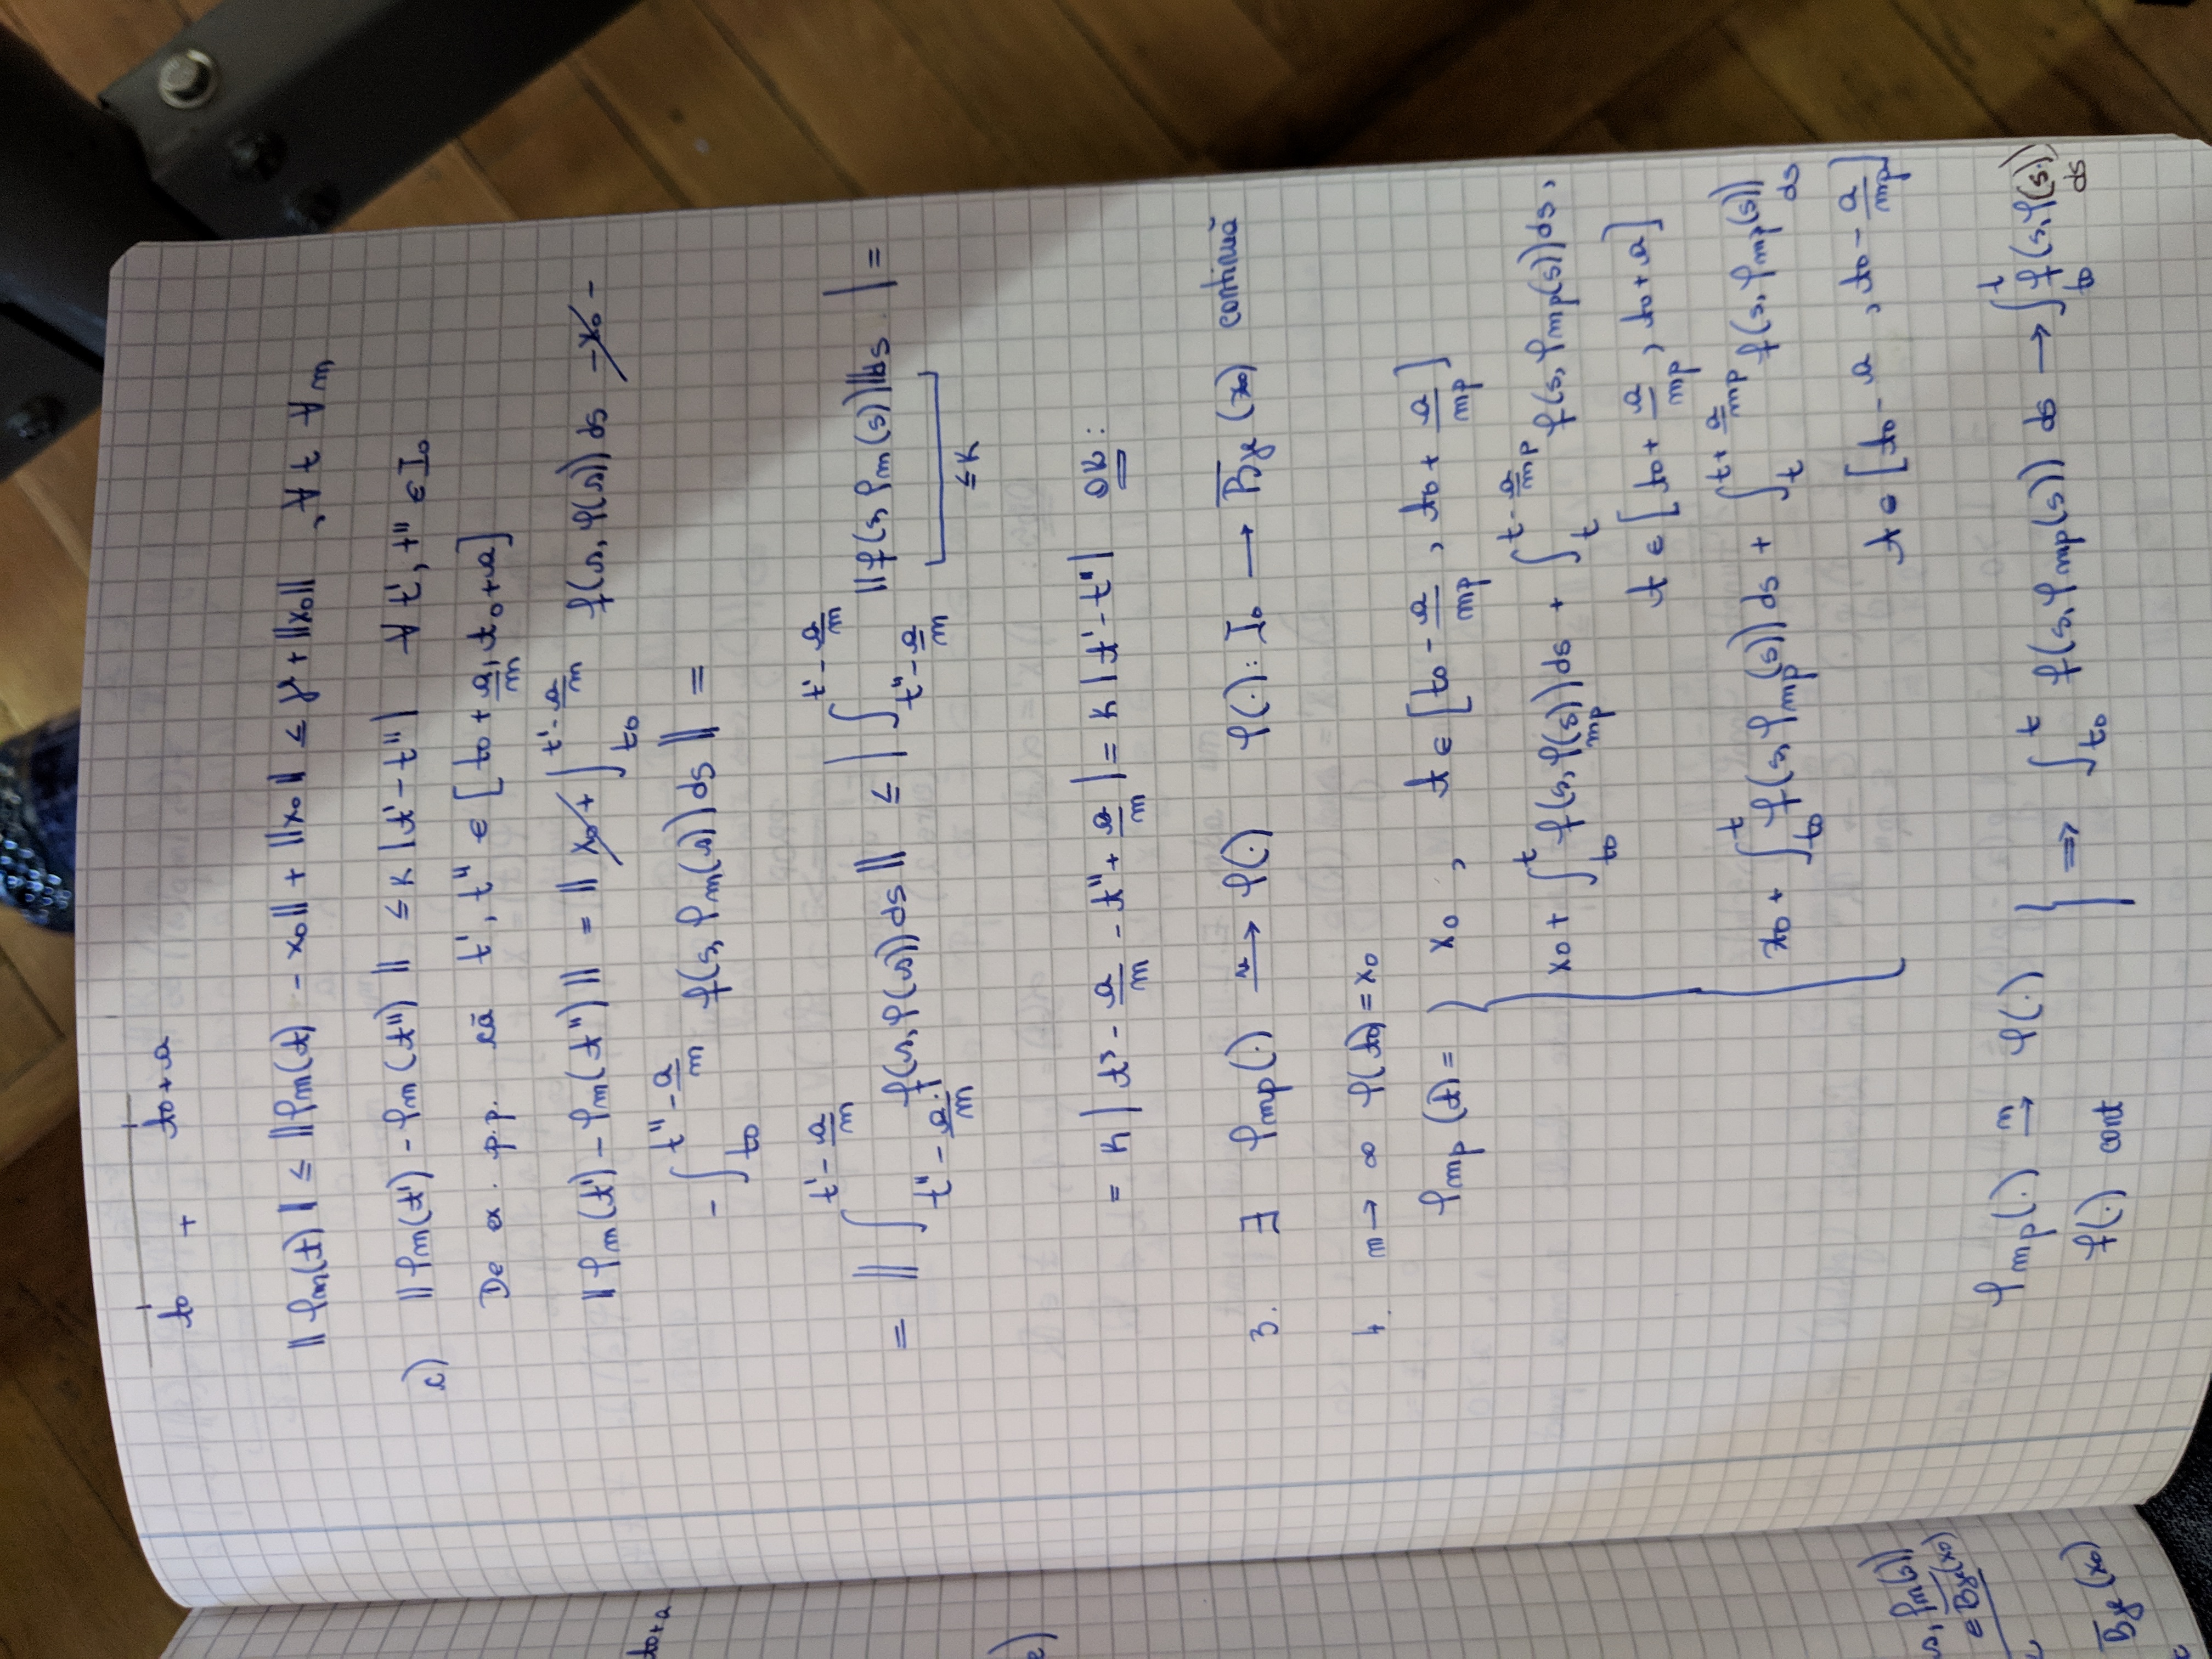 t₀ + t₀+a
‖φₘ(t)‖ ≤ ‖φₘ(t) - x₀‖ + ‖x₀‖ ≤ r + ‖x₀‖ , ∀ t ∀ m
c) ‖φₘ(t') - φₘ(t'')‖ ≤ K |t' - t''| ∀ t', t'' ∈ I₀
De ex. p.p. că t', t'' ∈ [t₀ + a/m, t₀+a]
‖φₘ(t') - φₘ(t'')‖ = ‖ x₀ + ∫_{t₀}^{t' - a/m} f(s, φ(s)) ds - x₀ -
- ∫_{t₀}^{t'' - a/m} f(s, φₘ(s)) ds ‖ =
= ‖ ∫_{t'' - a/m}^{t' - a/m} f(s, φ(s)) ds ‖ ≤ | ∫_{t'' - a/m}^{t' - a/m} ‖f(s, φₘ(s))‖ ds | =
≤ K
= K | t' - a/m - t'' + a/m | = K |t' - t''| OK :
3. ∃ φ_{mp}(·) →^{u} φ(·) φ(·): I₀ → B̄_r(x₀) continuă
4. m → ∞ φ(t₀) = x₀
φ_{mp}(t) = { x₀ , t ∈ [t₀ - a/mp , t₀ + a/mp]
x₀ + ∫_{t₀}^{t} f(s, φ_{mp}(s)) ds + ∫_{t}^{t - a/mp} f(s, φ_{mp}(s)) ds ,
t ∈ [t₀ + a/mp , t₀ + a]
x₀ + ∫_{t₀}^{t} f(s, φ_{mp}(s)) ds + ∫_{t}^{t + a/mp} f(s, φ_{mp}(s)) ds
t ∈ [t₀ - a , t₀ - a/mp]
φ_{mp}(·) →^{u} φ(·)
f(·) cont } ⇒ ∫_{t₀}^{t} f(s, φ_{mp}(s)) ds → ∫_{t₀}^{t} f(s, φ(s)) ds
t₀+a
s, φₘ(s))
∈ B̄_r(x₀)
B̄_r(x₀)